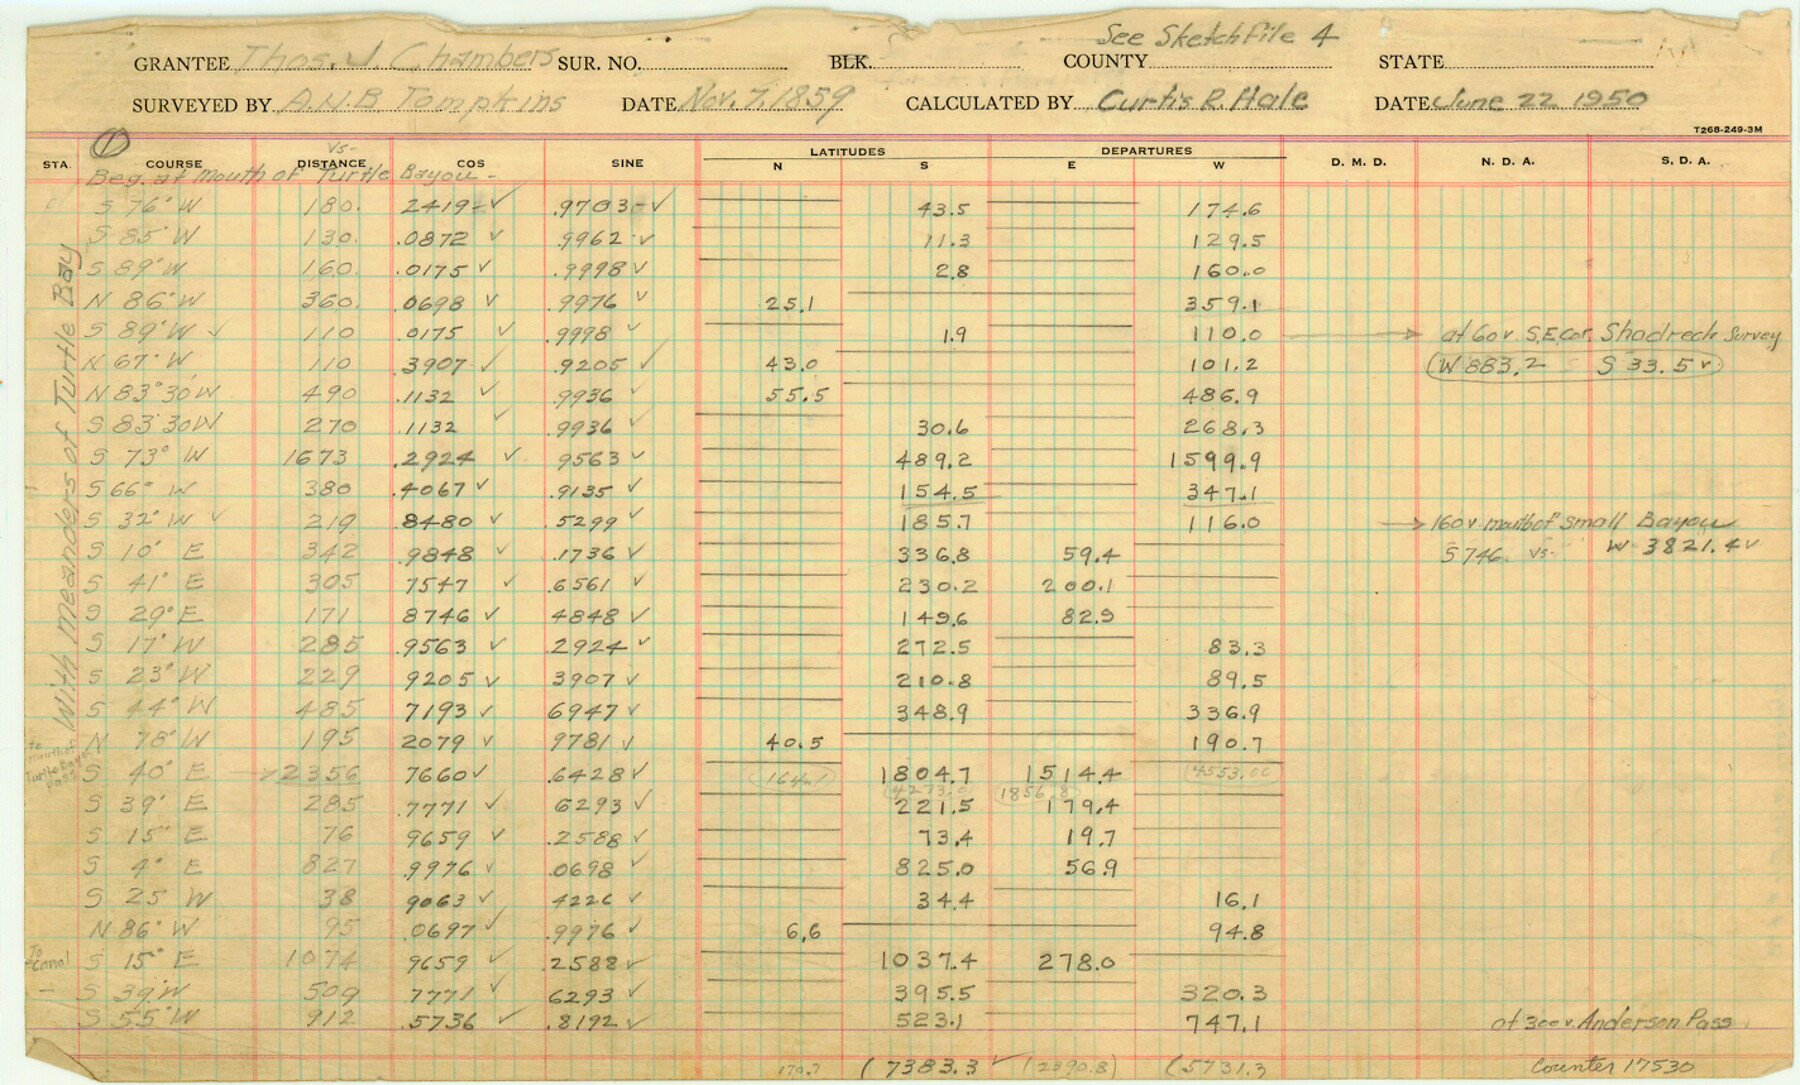 See Sketch File 4
GRANTEE Thos. J. Chambers SUR. NO. BLK. COUNTY STATE
SURVEYED BY A.H.B. Tompkins DATE Nov. 7, 1859 CALCULATED BY Curtis R. Hale DATE June 22 1950
T268-249-3M
1
STA. COURSE DISTANCE vs- COS SINE LATITUDES N S DEPARTURES E W D. M. D. N. D. A. S. D. A.
Beg. at Mouth of Turtle Bayou -
With meanders of Turtle Bay
S 76° W 180. 2419 ✓ .9703 ✓ 43.5 174.6
S 85° W 130. .0872 ✓ .9962 ✓ 11.3 129.5
S 89° W 160. .0175 ✓ .9998 ✓ 2.8 160.0
N 86° W 360. .0698 ✓ .9976 ✓ 25.1 359.1
S 89° W ✓ 110 .0175 ✓ .9998 ✓ 1.9 110.0 → at 60 v. S.E. Cor. Shadreck Survey
N 67° W 110 .3907 ✓ .9205 ✓ 43.0 101.2 (W 883.2 S 33.5 v)
N 83° 30 W 490 .1132 ✓ .9936 ✓ 55.5 486.9
S 83° 30 W 270 .1132 ✓ .9936 ✓ 30.6 268.3
S 73° W 1673 .2924 ✓ 9563 ✓ 489.2 1599.9
S 66° W 380 .4067 ✓ .9135 ✓ 154.5 347.1
S 32° W ✓ 219 .8480 ✓ .5299 ✓ 185.7 116.0 → 160 v. mouth of small Bayou
S 10° E 342 .9848 ✓ .1736 ✓ 336.8 59.4 S 746. vs- W 3821.4 v
S 41° E 305 7547 ✓ .6561 ✓ 230.2 200.1
S 29° E 171 8746 ✓ 4848 ✓ 149.6 82.9
S 17° W 285 .9563 ✓ .2924 ✓ 272.5 83.3
S 23° W 229 9205 ✓ 3907 ✓ 210.8 89.5
S 44° W 485 7193 ✓ 6947 ✓ 348.9 336.9
N 78° W 195 2079 ✓ 9781 ✓ 40.5 190.7
to mouth of Turtle Bay pass
S 40° E → 2356 7660 ✓ .6428 ✓ (164.1) 1804.7 1514.4 (4553.00)
(4273.0) (1856.8)
S 39° E 285 .7771 ✓ 6293 ✓ 221.5 179.4
S 15° E 76 9659 ✓ .2588 ✓ 73.4 19.7
S 4° E 827 .9976 ✓ .0698 ✓ 825.0 56.9
S 25 W 38 9063 ✓ 4226 ✓ 34.4 16.1
N 86° W 95 .0697 ✓ .9976 ✓ 6.6 94.8
To Canal S 15° E 1074 9659 ✓ .2588 ✓ 1037.4 278.0
S 39° W 509 .7771 ✓ 6293 ✓ 395.5 320.3
S 55° W 912 .5736 ✓ .8192 ✓ 523.1 747.1 at 300 v. Anderson Pass
170.7 (7383.3 ✓ (2390.8) (5731.3 Counter 17530